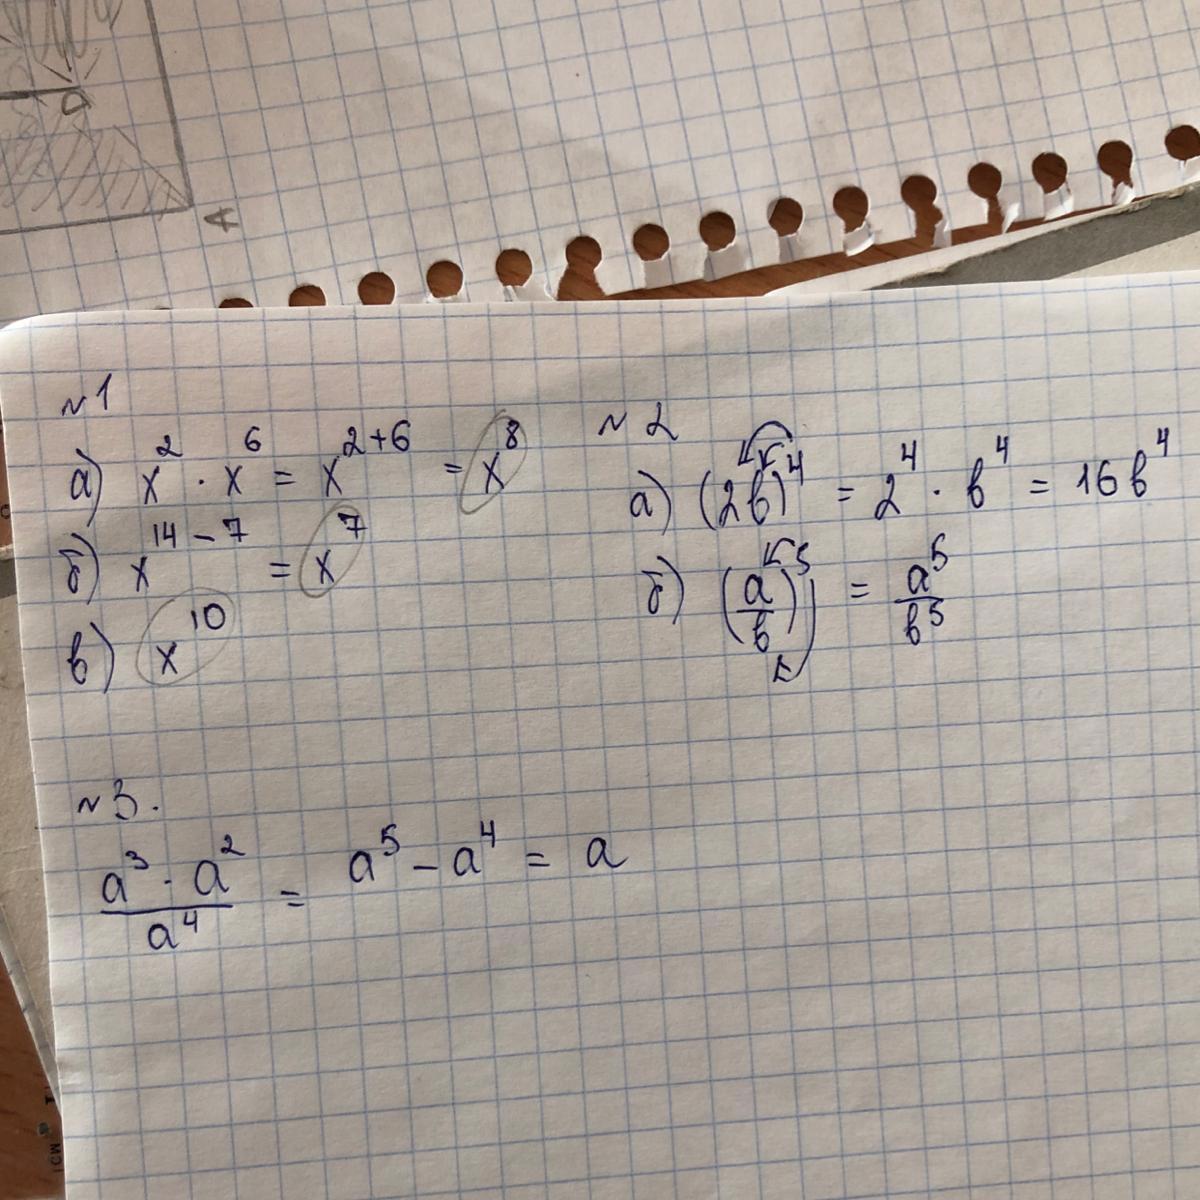 A
№1
а) x² · x⁶ = x²⁺⁶ = x⁸
б) x¹⁴⁻⁷ = x⁷
в) x¹⁰
№2
а) (2b)⁴ = 2⁴ · b⁴ = 16b⁴
б) (a/b)⁵ = a⁵/b⁵
№3.
a³ · a²/a⁴ = a⁵ - a⁴ = a